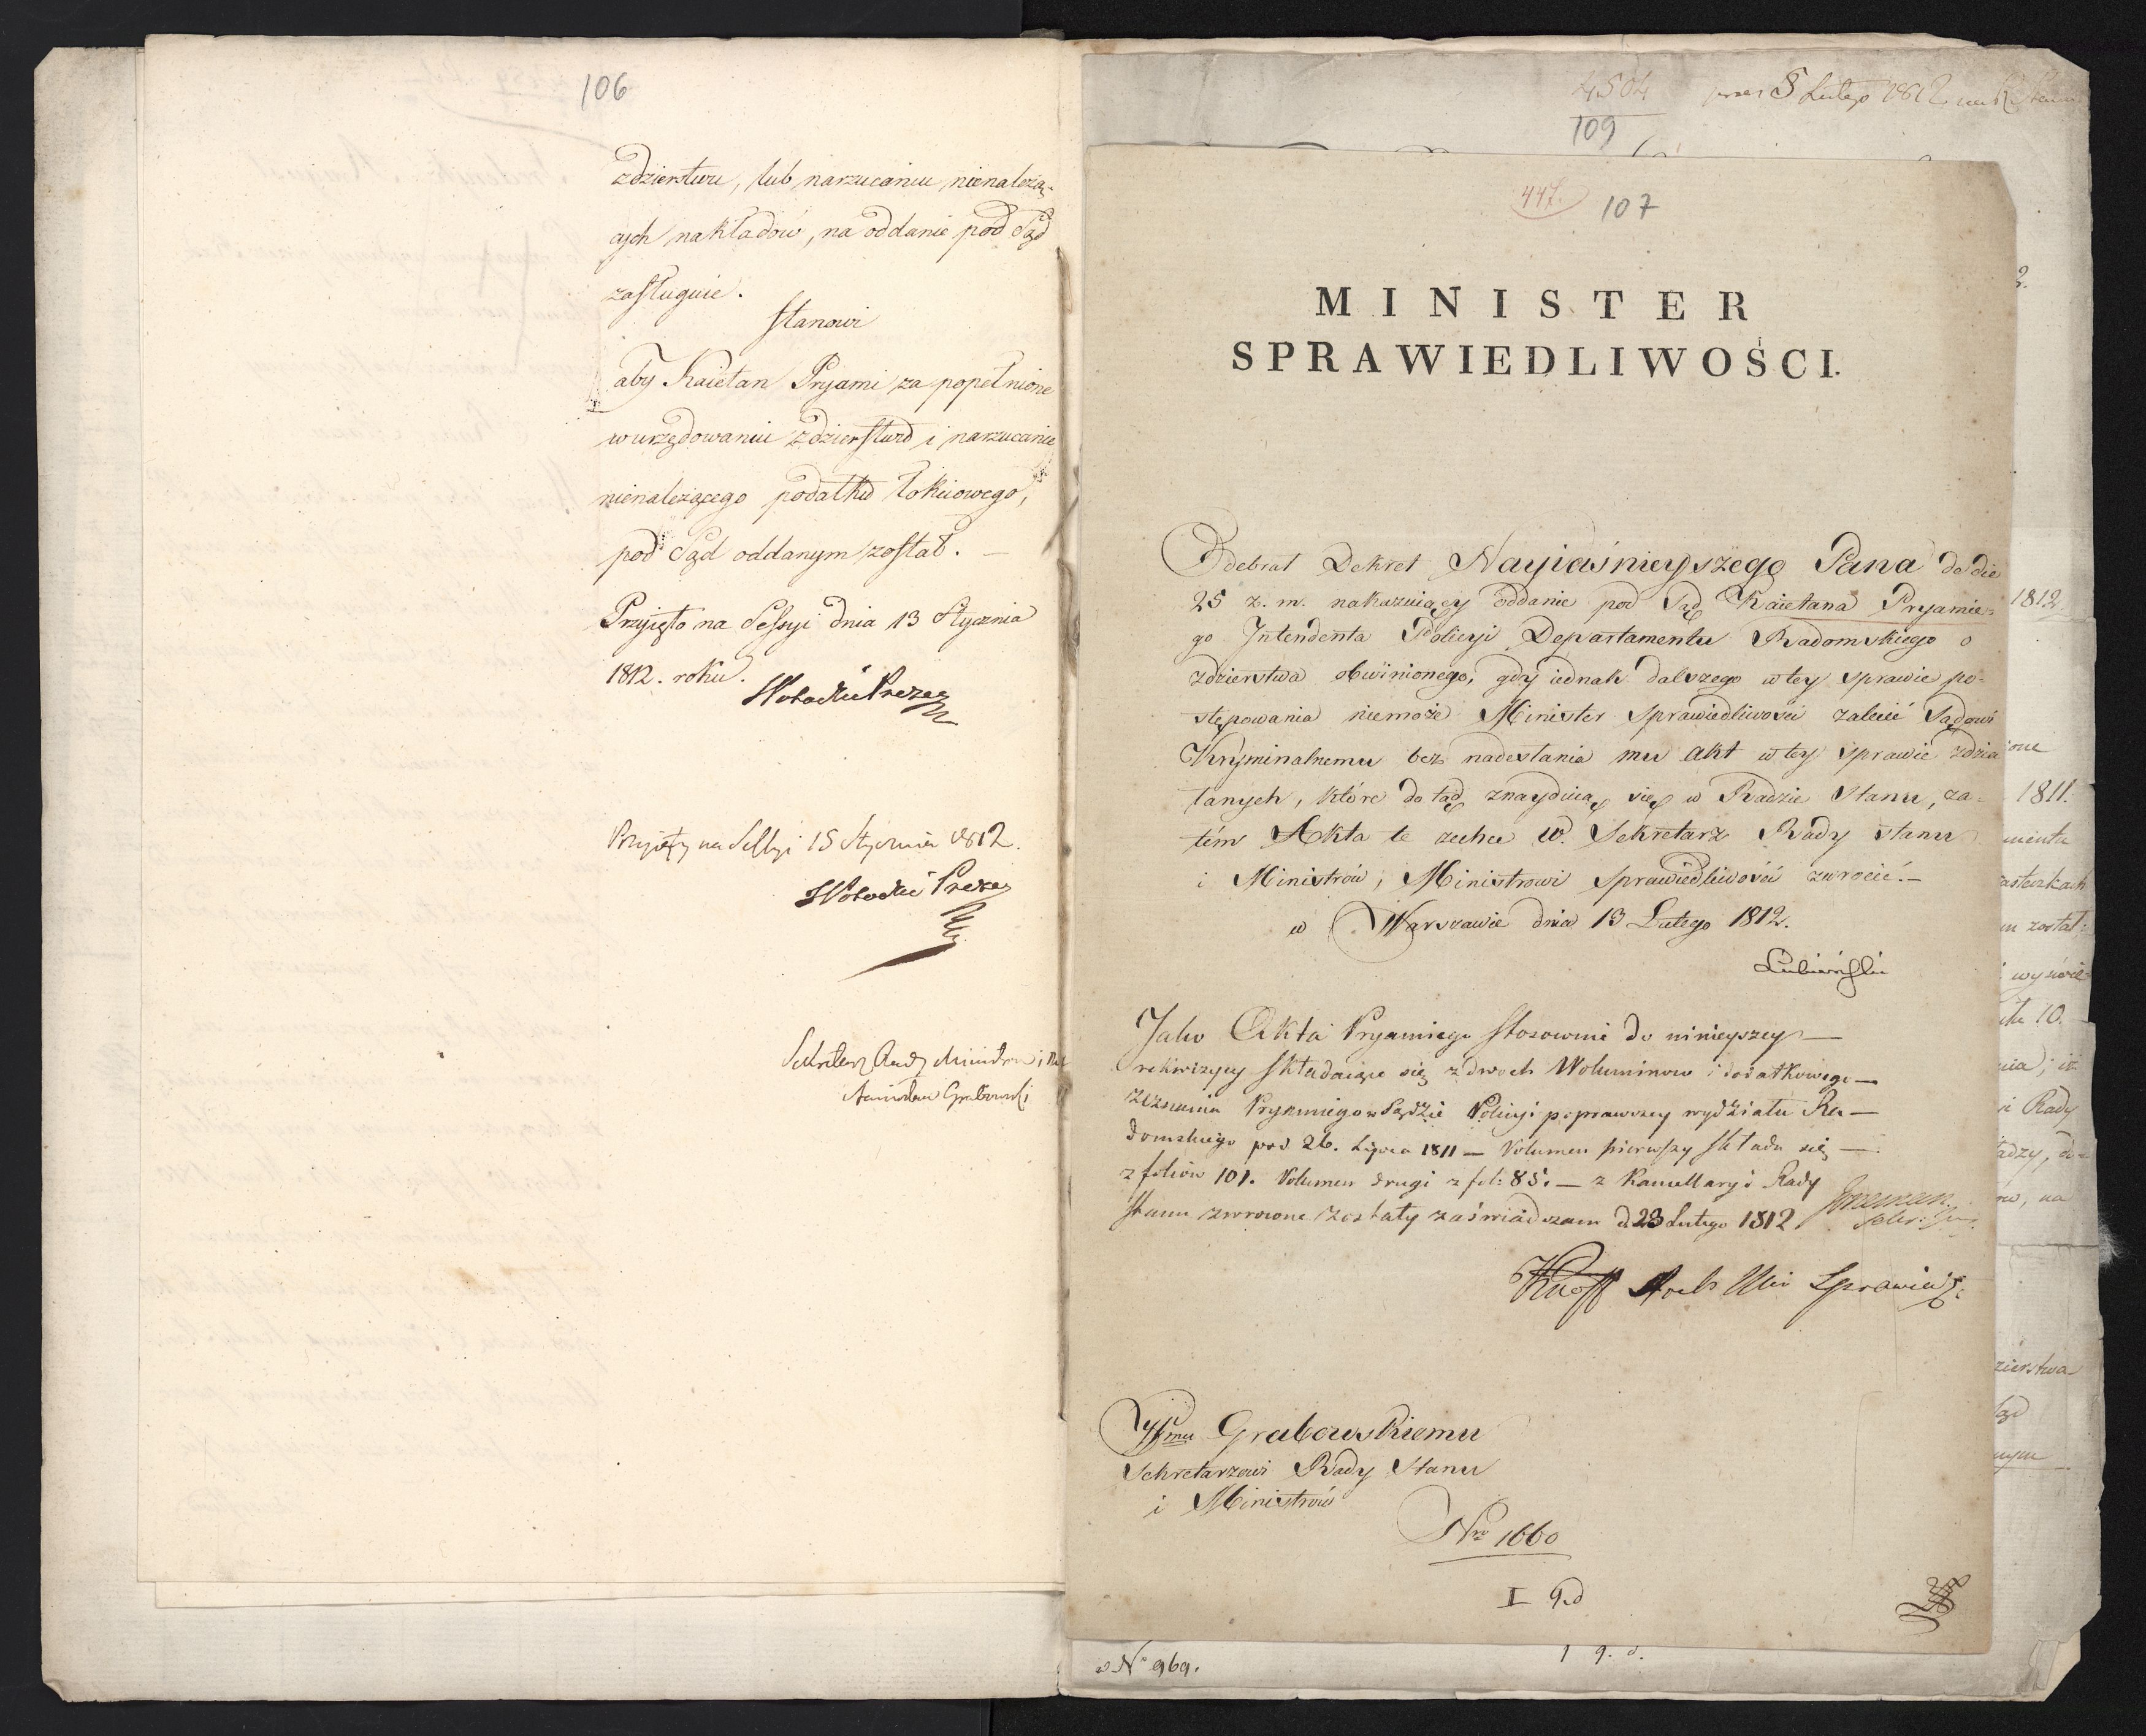 106
zdzierstwu, lub narzucaniu nienależą-
cych nakładów, na oddanie pod Sąd
zasługuie.
Stanowi
aby Kaietan Pryami za popełnione
w urzędowaniu zdzierstwo i narzucanie
nienależącego podatku łokciowego,
pod Sąd oddanym został. —
Przyięto na Sessyi dnia 13 Stycznia
1812. roku.
Prezes
Przyięty na Sessyi 15 Stycznia 1812.
Prezes
Sekretarz Rady Ministrów i
Stanisław Grabowski
4504
5 Lutego 1812
109
447.
107
MINISTER
SPRAWIEDLIWOŚCI.
Odebrał Dekret Nayiaśnieyszego Pana de die
25 z. m. nakazuiący oddanie pod Sąd Kaietana Pryamie-
go Intendenta Policyi Departamentu Radomskiego o
zdzierstwa obwinionego, gdy iednak dalszego w tey sprawie po-
stępowania niemoże Minister Sprawiedliwości zalecić Sądowi
Kryminalnemu bez nadesłania mu akt w tey sprawie zdzia
łanych, które do tąd znayduią się w Radzie Stanu, za-
tém Akta te zechce W. Sekretarz Rady Stanu
i Ministrów, Ministrowi Sprawiedliwości zwrócić. —
w Warszawie dnia 13 Lutego 1812.
Łubieński
Jako Akta Pryamiego stosownie do ninieyszey —
rekwizycyi składaiące się z dwoch Woluminow i dodatkowego —
zeznania Pryamiego w Sądzie Policyi poprawczey wydziału Ra —
domskiego pod 26. Lipca 1811 — Volumen pierwszy składa się —
z foliów 101. Volumen drugi z fol: 85. — z Kancellaryi Rady
Stanu zwrocone zostały zaświadczam d. 23 Lutego 1812
Knoff
Grabowskiemu
Sekretarzowi Rady Stanu
i Ministrów
Nro 1660
I 9.d
w No 969.
1 9. d.
2.
1812.
ione
1811.
mentu
asteczkach
m został
10.
i Rady
adzy,
ów, na
zierstwa